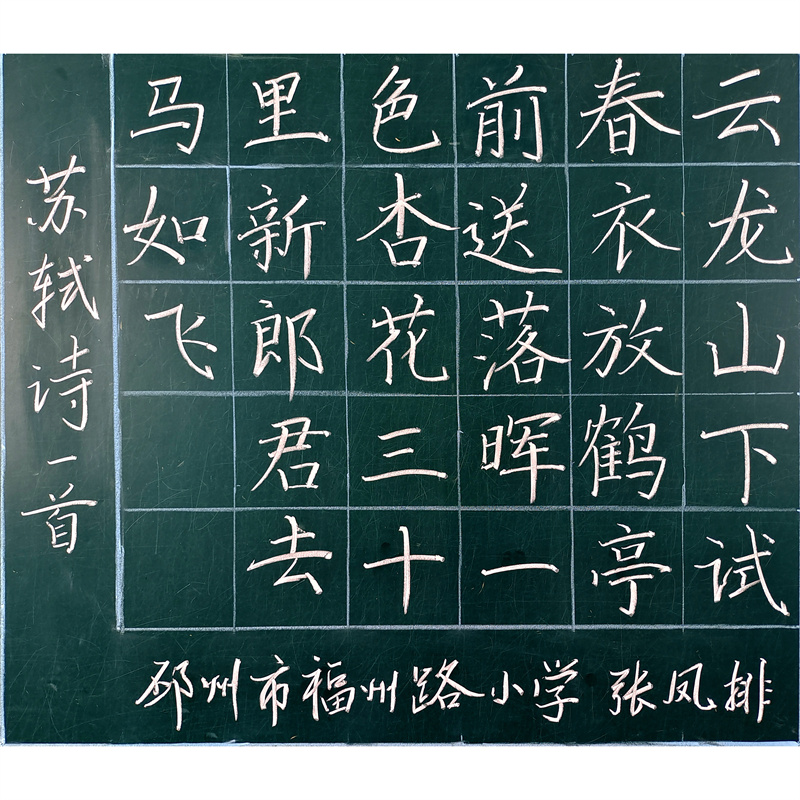 云龙山下试
春衣放鹤亭
前送落晖一
色杏花三十
里新郎君去
马如飞
苏轼诗一首
邳州市福州路小学 张凤排